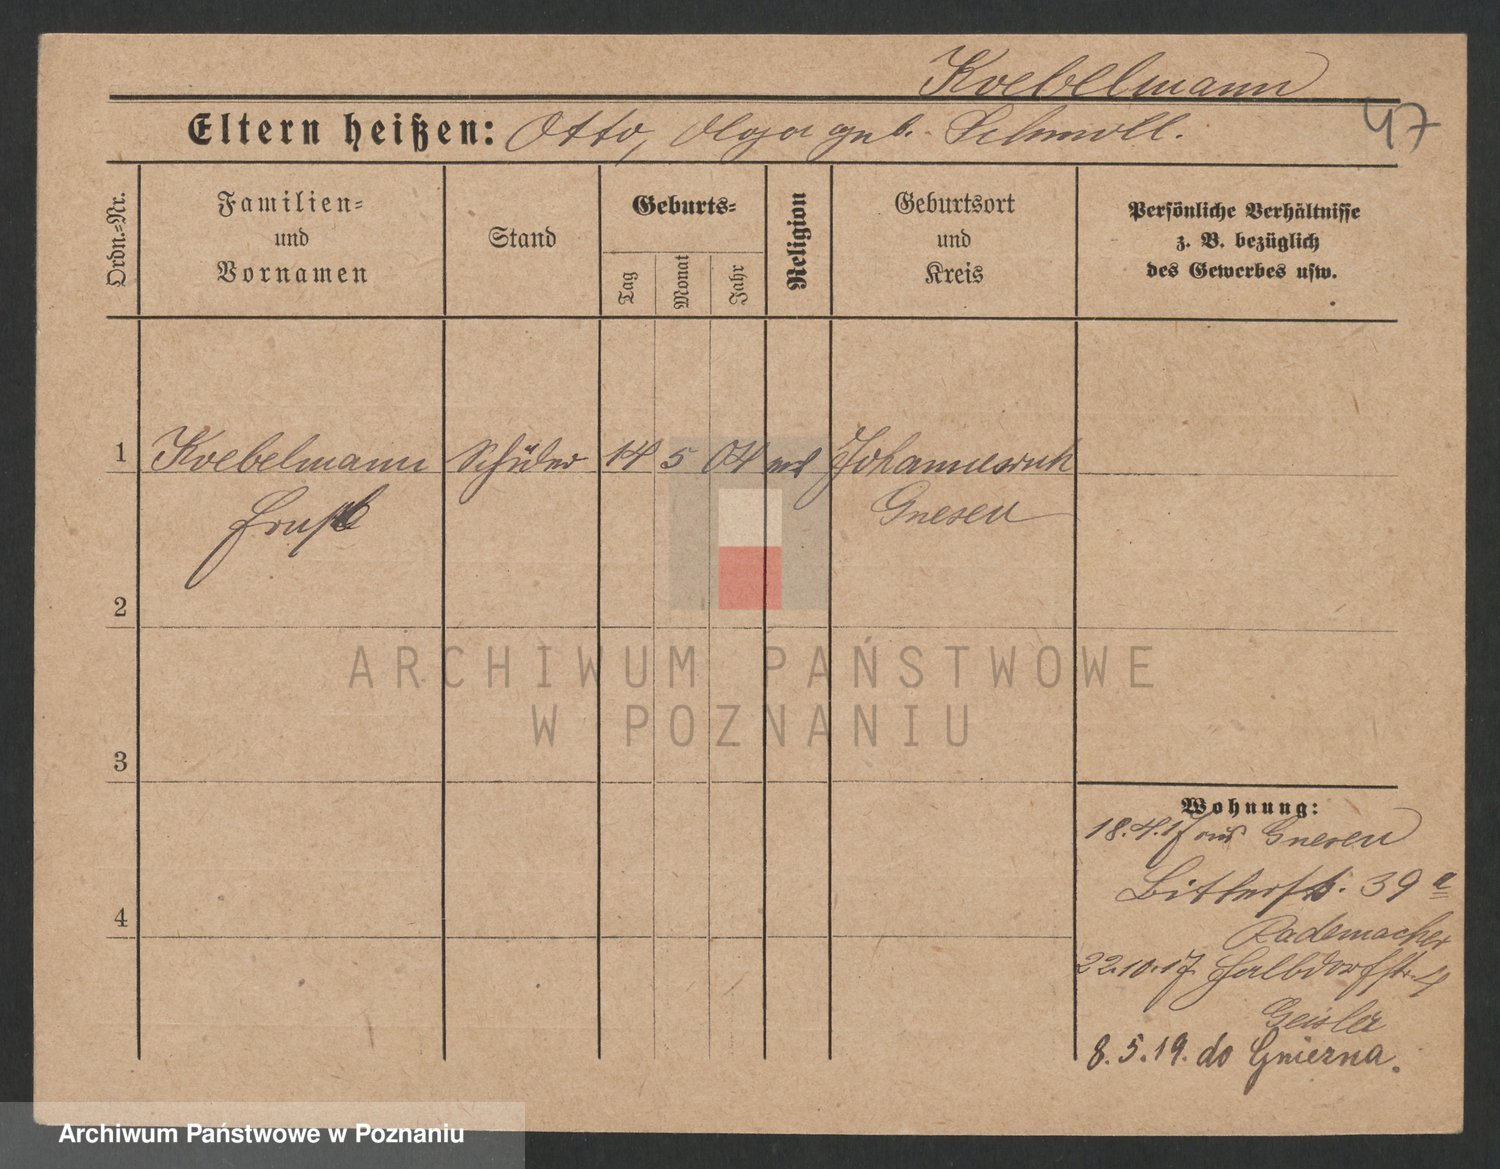 Koebelmann
Eltern heißen: Otto, Olga geb. Schmoll.
47
Ordn.-Nr.
Familien-
und
Vornamen
Stand
Geburts-
Tag
Monat
Jahr
Religion
Geburtsort
und
Kreis
Persönliche Verhältnisse
z. B. bezüglich
des Gewerbes usw.
1 Koebelmann Schüler 14 5 04 Johannesruh
Ernst Gnesen
2
3
4
Wohnung:
18.4.17 aus Gnesen
Bitterstr. 39 a
Rademacher
22.10.17. Halbdorfstr. 4
Geisler
8.5.19. do Gniezna.
ARCHIWUM PAŃSTWOWE
W POZNANIU
Archiwum Państwowe w Poznaniu